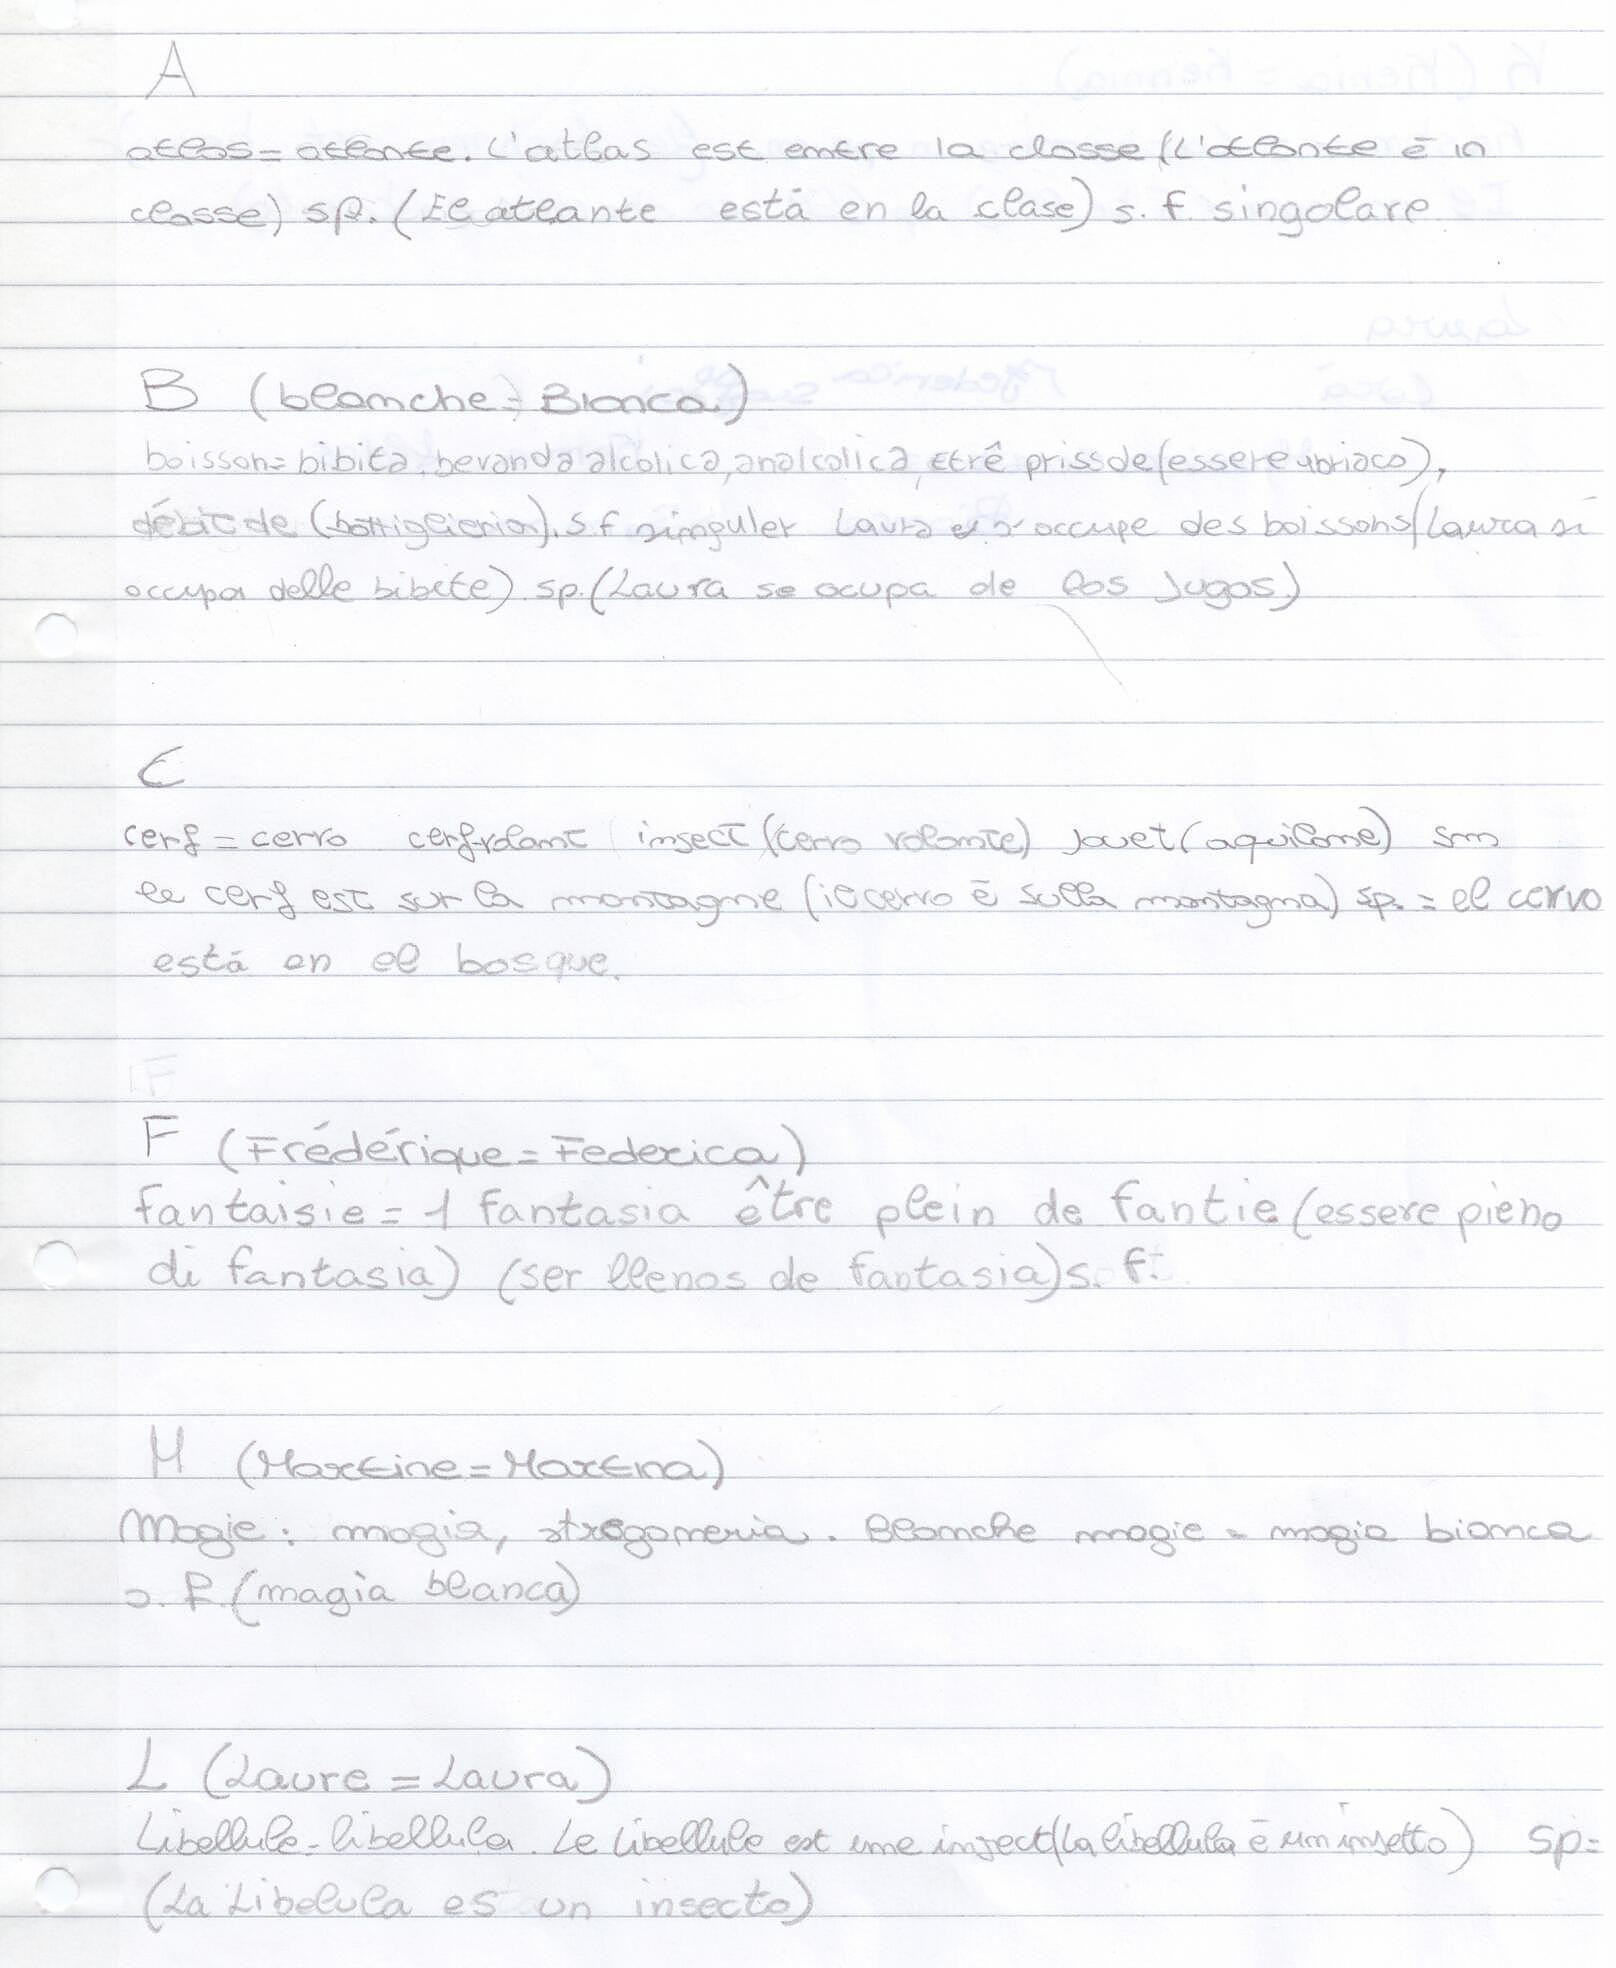 A
atlas = atlante. L'atlas est entre la classe (L'atlante è in
classe) sp. (El atlante está en la clase) s. f. singolare
B (blanche = Bianca)
boisson = bibita, bevanda alcolica, analcolica, etrê priss de (essere ubriaco),
débit de (bottiglieria). s. f singuler Laura s'occupe des boissons (Laura si
occupa delle bibite) sp. (Laura se ocupa de los Jugos)
C
cerf = cervo cerf-volant insect (cervo volante) Jouet (aquilone) sm
le cerf est sur la montagne (il cervo è sulla montagna) sp. = el cervo
está en el bosque.
F
F (Frédérique = Federica)
fantaisie = 1 fantasia être plein de fantie (essere pieno
di fantasia) (ser llenos de fantasia) s. f.
M (Martine = Martina)
Magie: magia, stregoneria. Blanche magie = magia bianca
s. f. (magia blanca)
L (Laure = Laura)
Libellule = libellula. Le libellule est une insect (La libellula è un insetto) sp =
(La Libelula es un insecto)